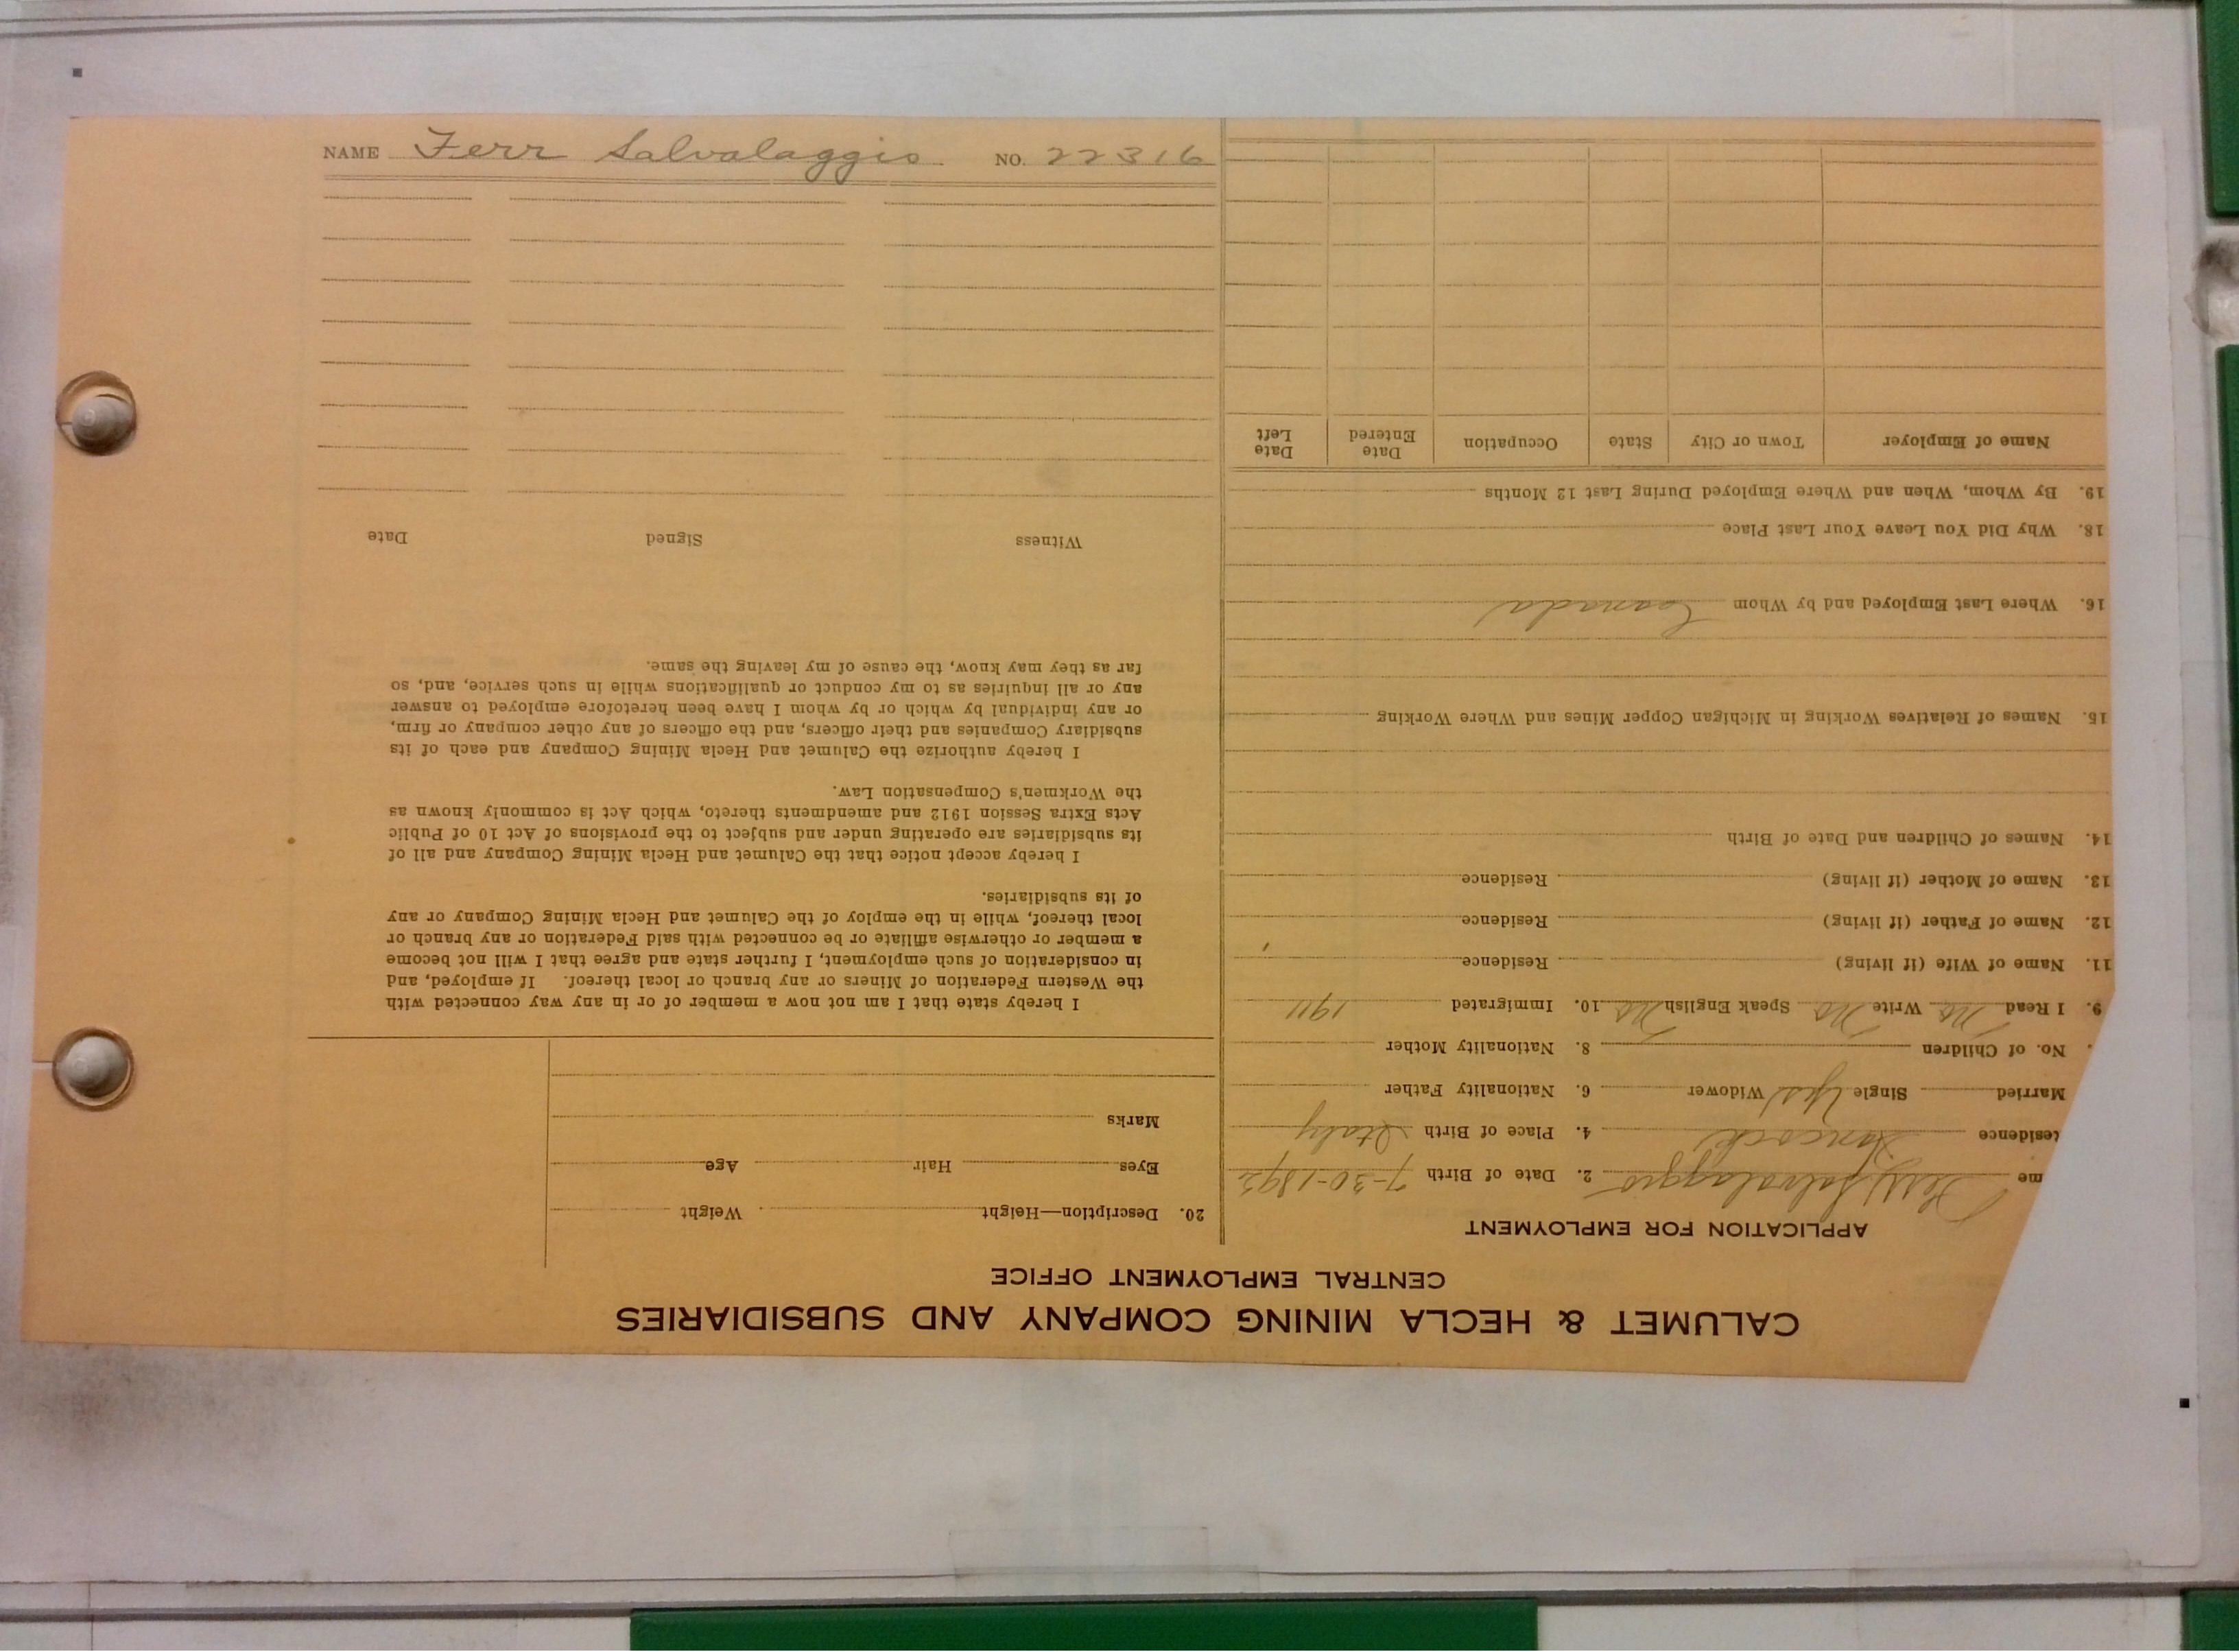 NAME Ferr Salvalaggio. NO. 22316
CALUMET & HECLA MINING COMPANY AND SUBSIDIARIES
CENTRAL EMPLOYMENT OFFICE
APPLICATION FOR EMPLOYMENT
me Ferr Salvalaggio 2. Date of Birth 7-30-1892
esidence Hancock 4. Place of Birth Italy
Married Single Yes Widower 6. Nationality Father
No. of Children 8. Nationality Mother
9. I Read No Write No Speak English No 10. Immigrated 1911
11. Name of Wife (if living) Residence
12. Name of Father (if living) Residence
13. Name of Mother (if living) Residence
14. Names of Children and Date of Birth
15. Names of Relatives Working in Michigan Copper Mines and Where Working
16. Where Last Employed and by Whom Canada
18. Why Did You Leave Your Last Place
19. By Whom, When and Where Employed During Last 12 Months
Name of Employer Town or City State Occupation Date Entered Date Left
20. Description—Height Weight
Eyes Hair Age
Marks
I hereby state that I am not now a member of or in any way connected with
the Western Federation of Miners or any branch or local thereof. If employed, and
in consideration of such employment, I further state and agree that I will not become
a member or otherwise affiliate or be connected with said Federation or any branch or
local thereof, while in the employ of the Calumet and Hecla Mining Company or any
of its subsidiaries.
I hereby accept notice that the Calumet and Hecla Mining Company and all of
its subsidiaries are operating under and subject to the provisions of Act 10 of Public
Acts Extra Session 1912 and amendments thereto, which Act is commonly known as
the Workmen's Compensation Law.
I hereby authorize the Calumet and Hecla Mining Company and each of its
subsidiary Companies and their officers, and the officers of any other company or firm,
or any individual by which or by whom I have been heretofore employed to answer
any or all inquiries as to my conduct or qualifications while in such service, and, so
far as they may know, the cause of my leaving the same.
Witness Signed Date